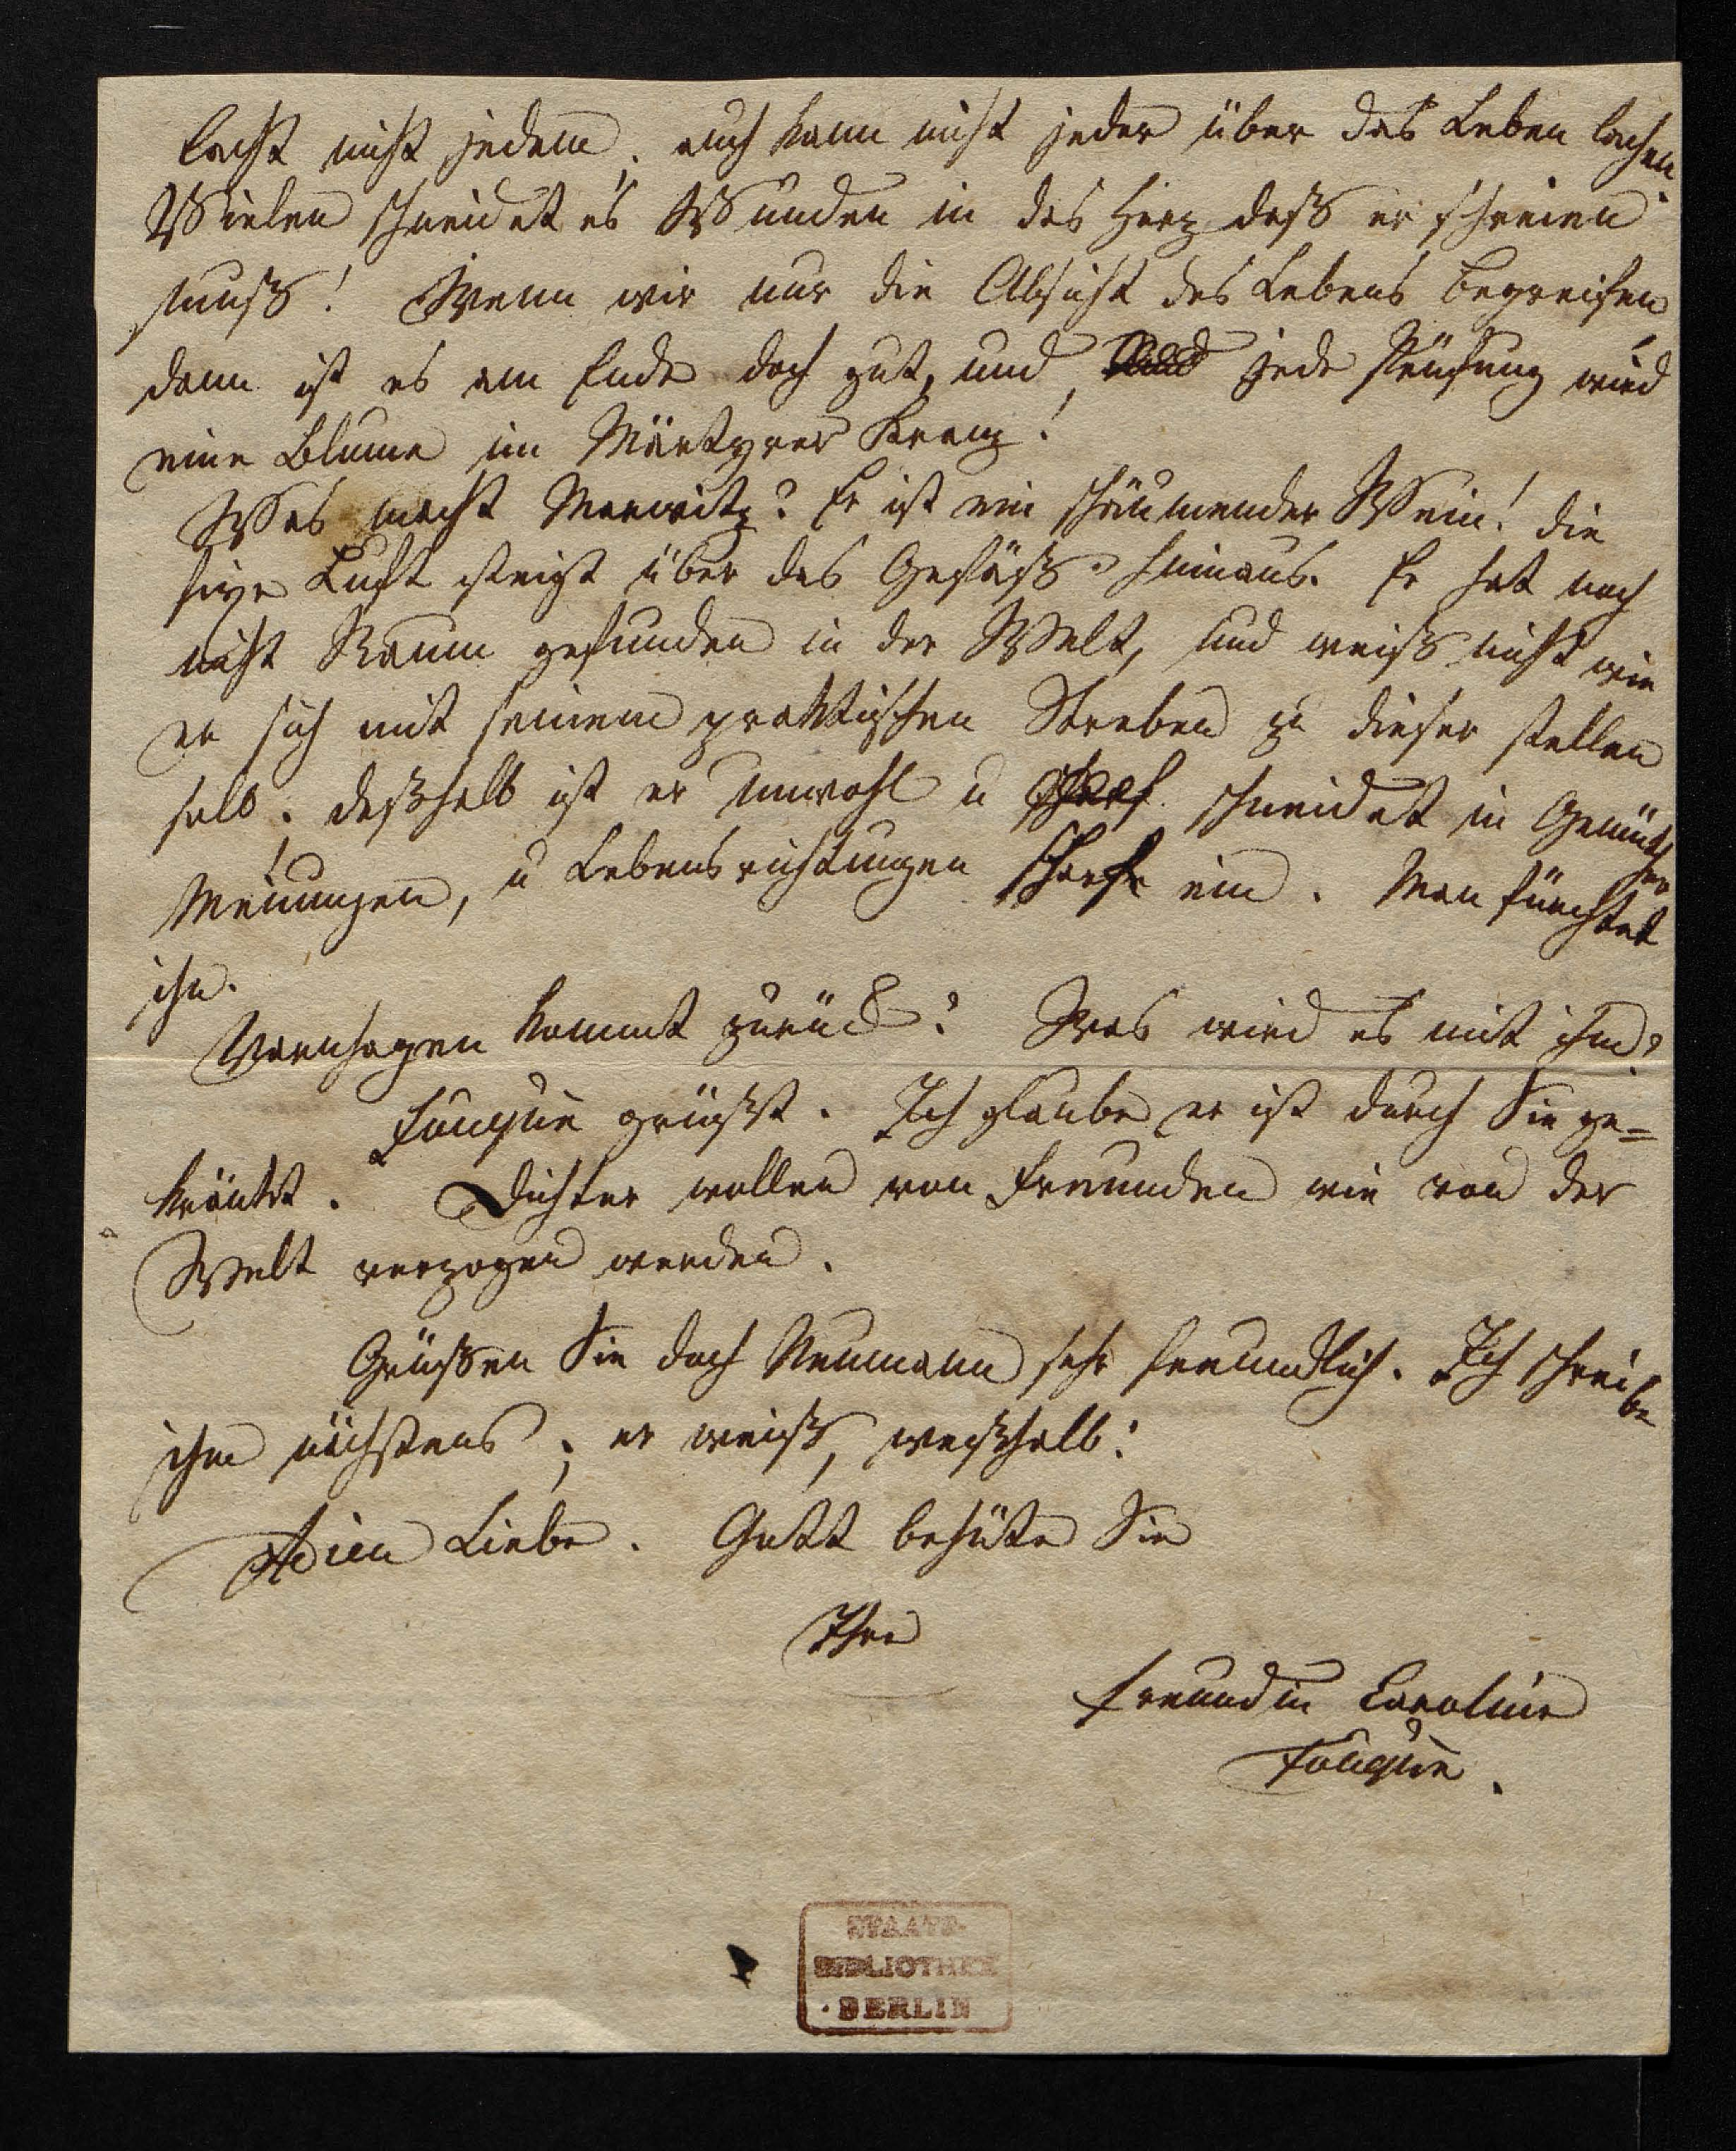 lacht nicht jedem, auch kann nicht jeder über das Leben lachen.
Vielen schneidet es Wunden in das Herz daß er schreien
muß! Wenn wir nur die Absicht des Lebens begreifen,
dann ist es am Ende doch gut, und jede Prüfung wird
eine Blume im Märtyrer Kranz!
Was macht Marwitz? Er ist ein schäumender Wein! die
fixe Luft steigt über das Gefäß hinaus. Er hat noch
nicht Raum gefunden in der Welt, und weiß nicht wie
er sich mit seinem praktischen Streben zu dieser stellen
soll. deßhalb ist er unwohl u scharf schneidet in Gemüther
Meinungen, u Lebensrichtungen scharf ein. Man fürchtet
ihn.
Varnhagen kommt zurück? Was wird es mit ihm?
Fouqué grüßt. Ich glaube er ist durch Sie ge=
kränkt. Dichter wollen von Freunden wie von der
Welt verzogen werden.
Grüßen Sie doch Neumann sehr freundlich. Ich schreibe
ihm nächstens; er weiß, weßhalb!
Adieu Liebe. Gott behüte Sie
Ihre
Freundin Caroline
Fouqué.
STAATS-
BIBLIOTHEK
BERLIN